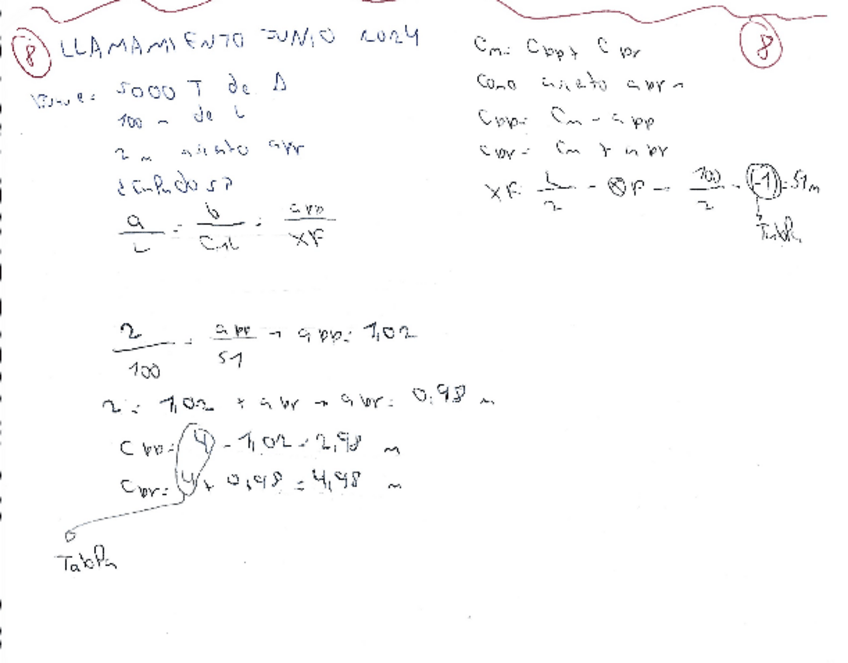 8 LLAMAMIENTO JUNIO 2024
5000 T de Δ
100 m de L
2 m asiento apr
a/L = b/Cml = app/XF
2/100 = app/51 → app = 1,02
2 = 1,02 + apr → apr = 0,98 m
Cpp = 4 - 1,02 = 2,98 m
Cpr = 4 + 0,98 = 4,98 m
TabPn
8
Cm = Cpp + Cpr
Como asiento apr
Cpp = Cm - app
Cpr = Cm + apr
XF = L/2 - ⊗F = 100/2 - (-1) = 51 m
TabPn